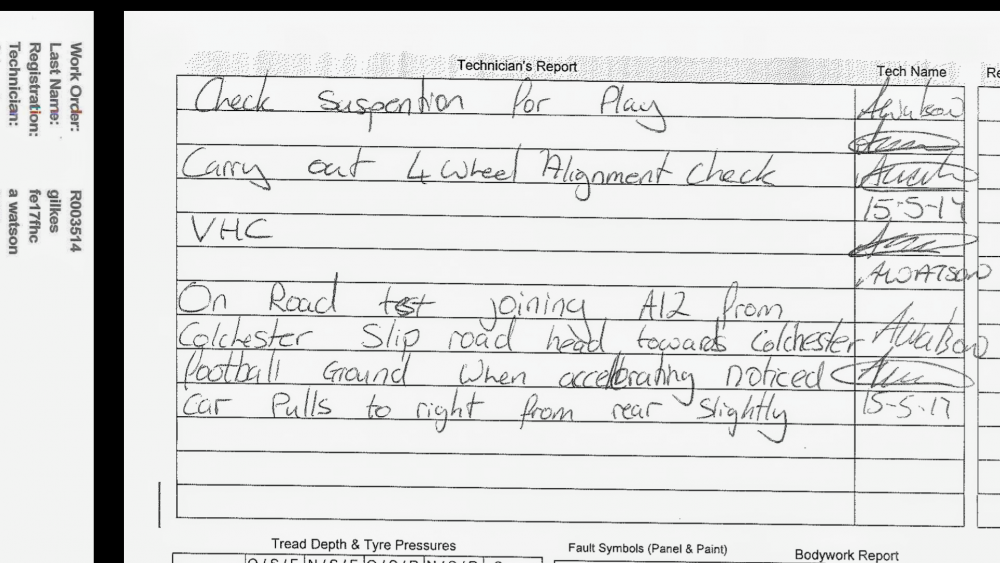 Work Order: R003514
Last Name: gilkes
Registration: fe17fhc
Technician: a watson
Technician's Report
Tech Name
Re
Check Suspention for Play
AWatson
Carry out 4 Wheel Alignment check
15-5-17
VHC
AWATSON
On Road test joining A12 from
Colchester Slip road head towards Colchester AWatson
football Ground When accelbrating noticed
car Pulls to right from rear slightly 15-5-17
Tread Depth & Tyre Pressures
Fault Symbols (Panel & Paint)
Bodywork Report